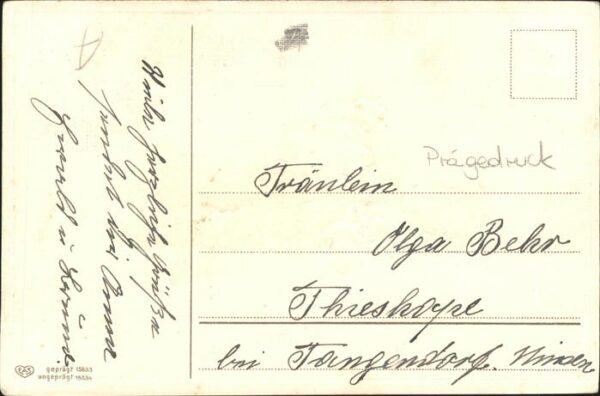 Viele herzliche Grüße
sendet dir Anna
Ewald u
Prägedruck
Fräulein
Olga Behr
Thieshope
bei Tangendorf. Winsen
EAS
geprägt 15633
ungeprägt 15534